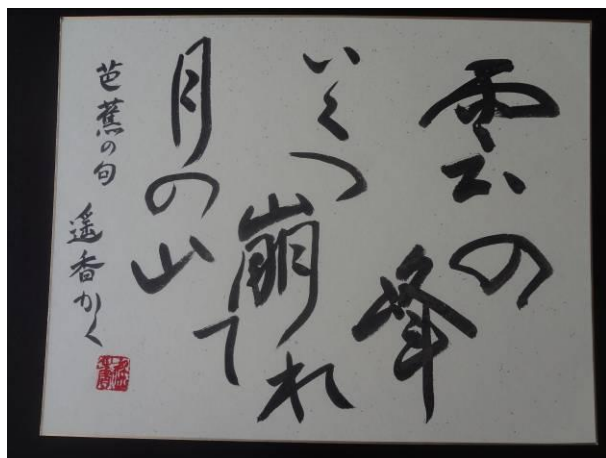 雲の
峰
いくつ
崩れ
て
月の山
芭蕉の句
遥香かく